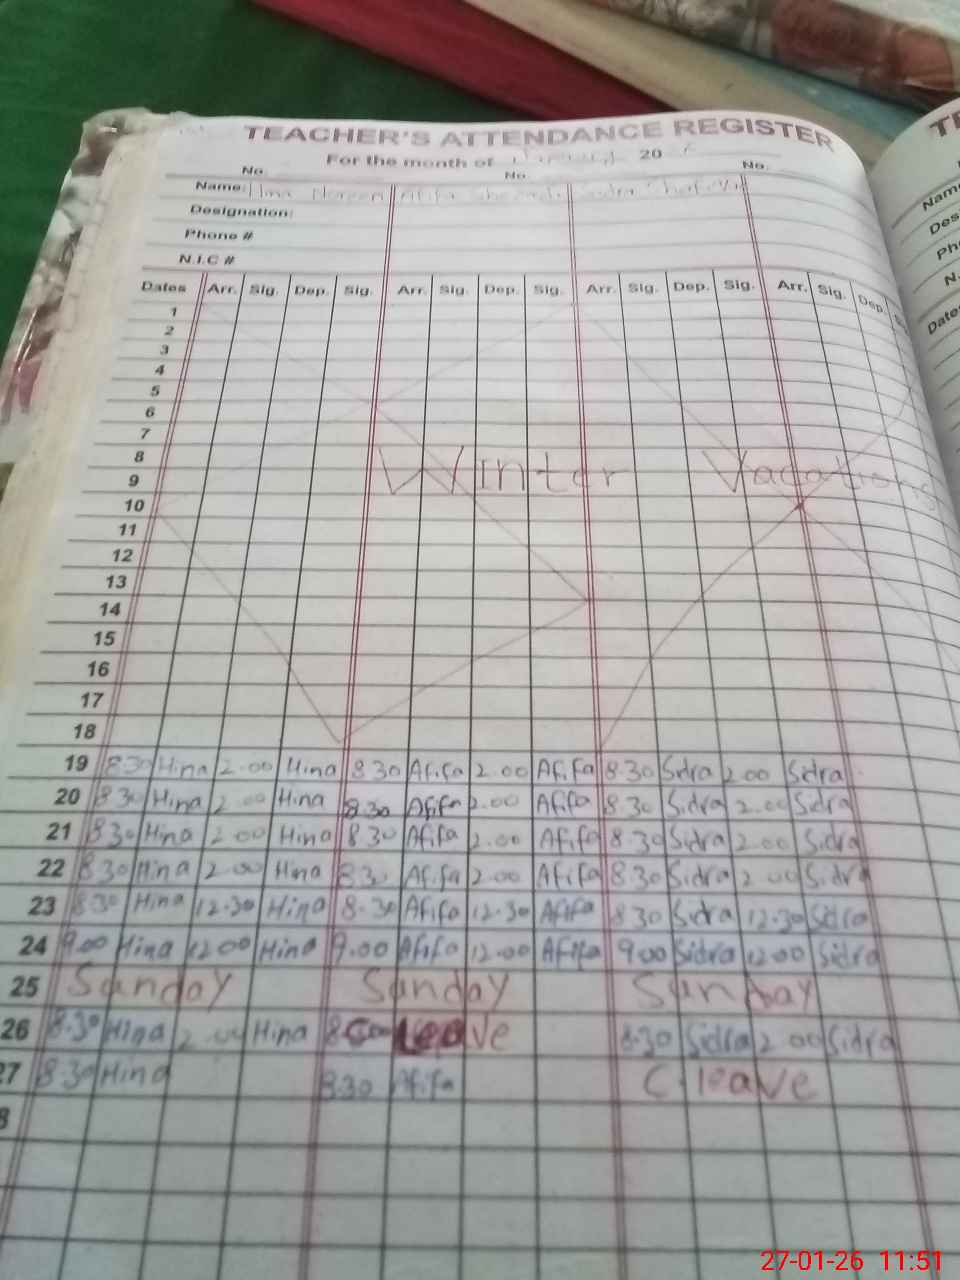 TEACHER'S ATTENDANCE REGISTER
For the month of 20
No. No. No.
Name: Hina Noreen Afifa Sidra
Designation:
Phone #
N.I.C #
Dates Arr. Sig. Dep. Sig. Arr. Sig. Dep. Sig. Arr. Sig. Dep. Sig. Arr. Sig. Dep.
1
2
3
4
5
6
7
8
9 Winter Vacations
10
11
12
13
14
15
16
17
18
19 8.30 Hina 2.00 Hina 8.30 Afifa 2.00 Afifa 8.30 Sidra 2.00 Sidra
20 8.30 Hina 2.00 Hina 8.30 Afifa 2.00 Afifa 8.30 Sidra 2.00 Sidra
21 8.30 Hina 2.00 Hina 8.30 Afifa 2.00 Afifa 8.30 Sidra 2.00 Sidra
22 8.30 Hina 2.00 Hina 8.30 Afifa 2.00 Afifa 8.30 Sidra 2.00 Sidra
23 8.30 Hina 12.30 Hina 8.30 Afifa 12.30 Afifa 8.30 Sidra 12.30 Sidra
24 9.00 Hina 12.00 Hina 9.00 Afifa 12.00 Afifa 9.00 Sidra 12.00 Sidra
25 Sunday Sunday Sunday
26 8.30 Hina 2.00 Hina Leave 8.30 Sidra 2.00 Sidra
27 8.30 Hina 8.30 Afifa C.leave
8
Name
Des
Pho
N.
Dates
27-01-26 11:51